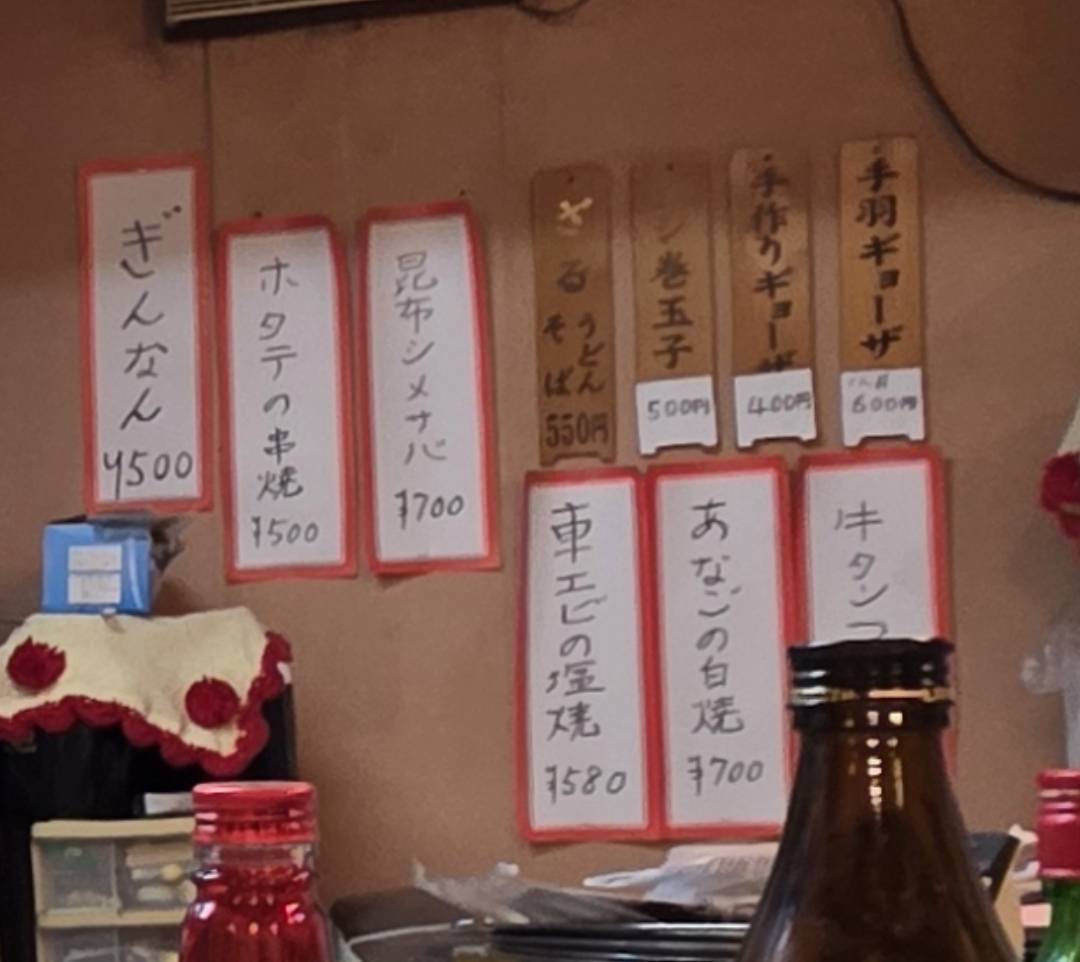 ぎんなん
¥500
ホタテの串焼
¥500
昆布シメサバ
¥700
ざる
うどん
そば
550円
シ巻玉子
500円
手作りギョーザ
400円
手羽ギョーザ
600円
車エビの塩焼
¥580
あなごの白焼
¥700
牛タン